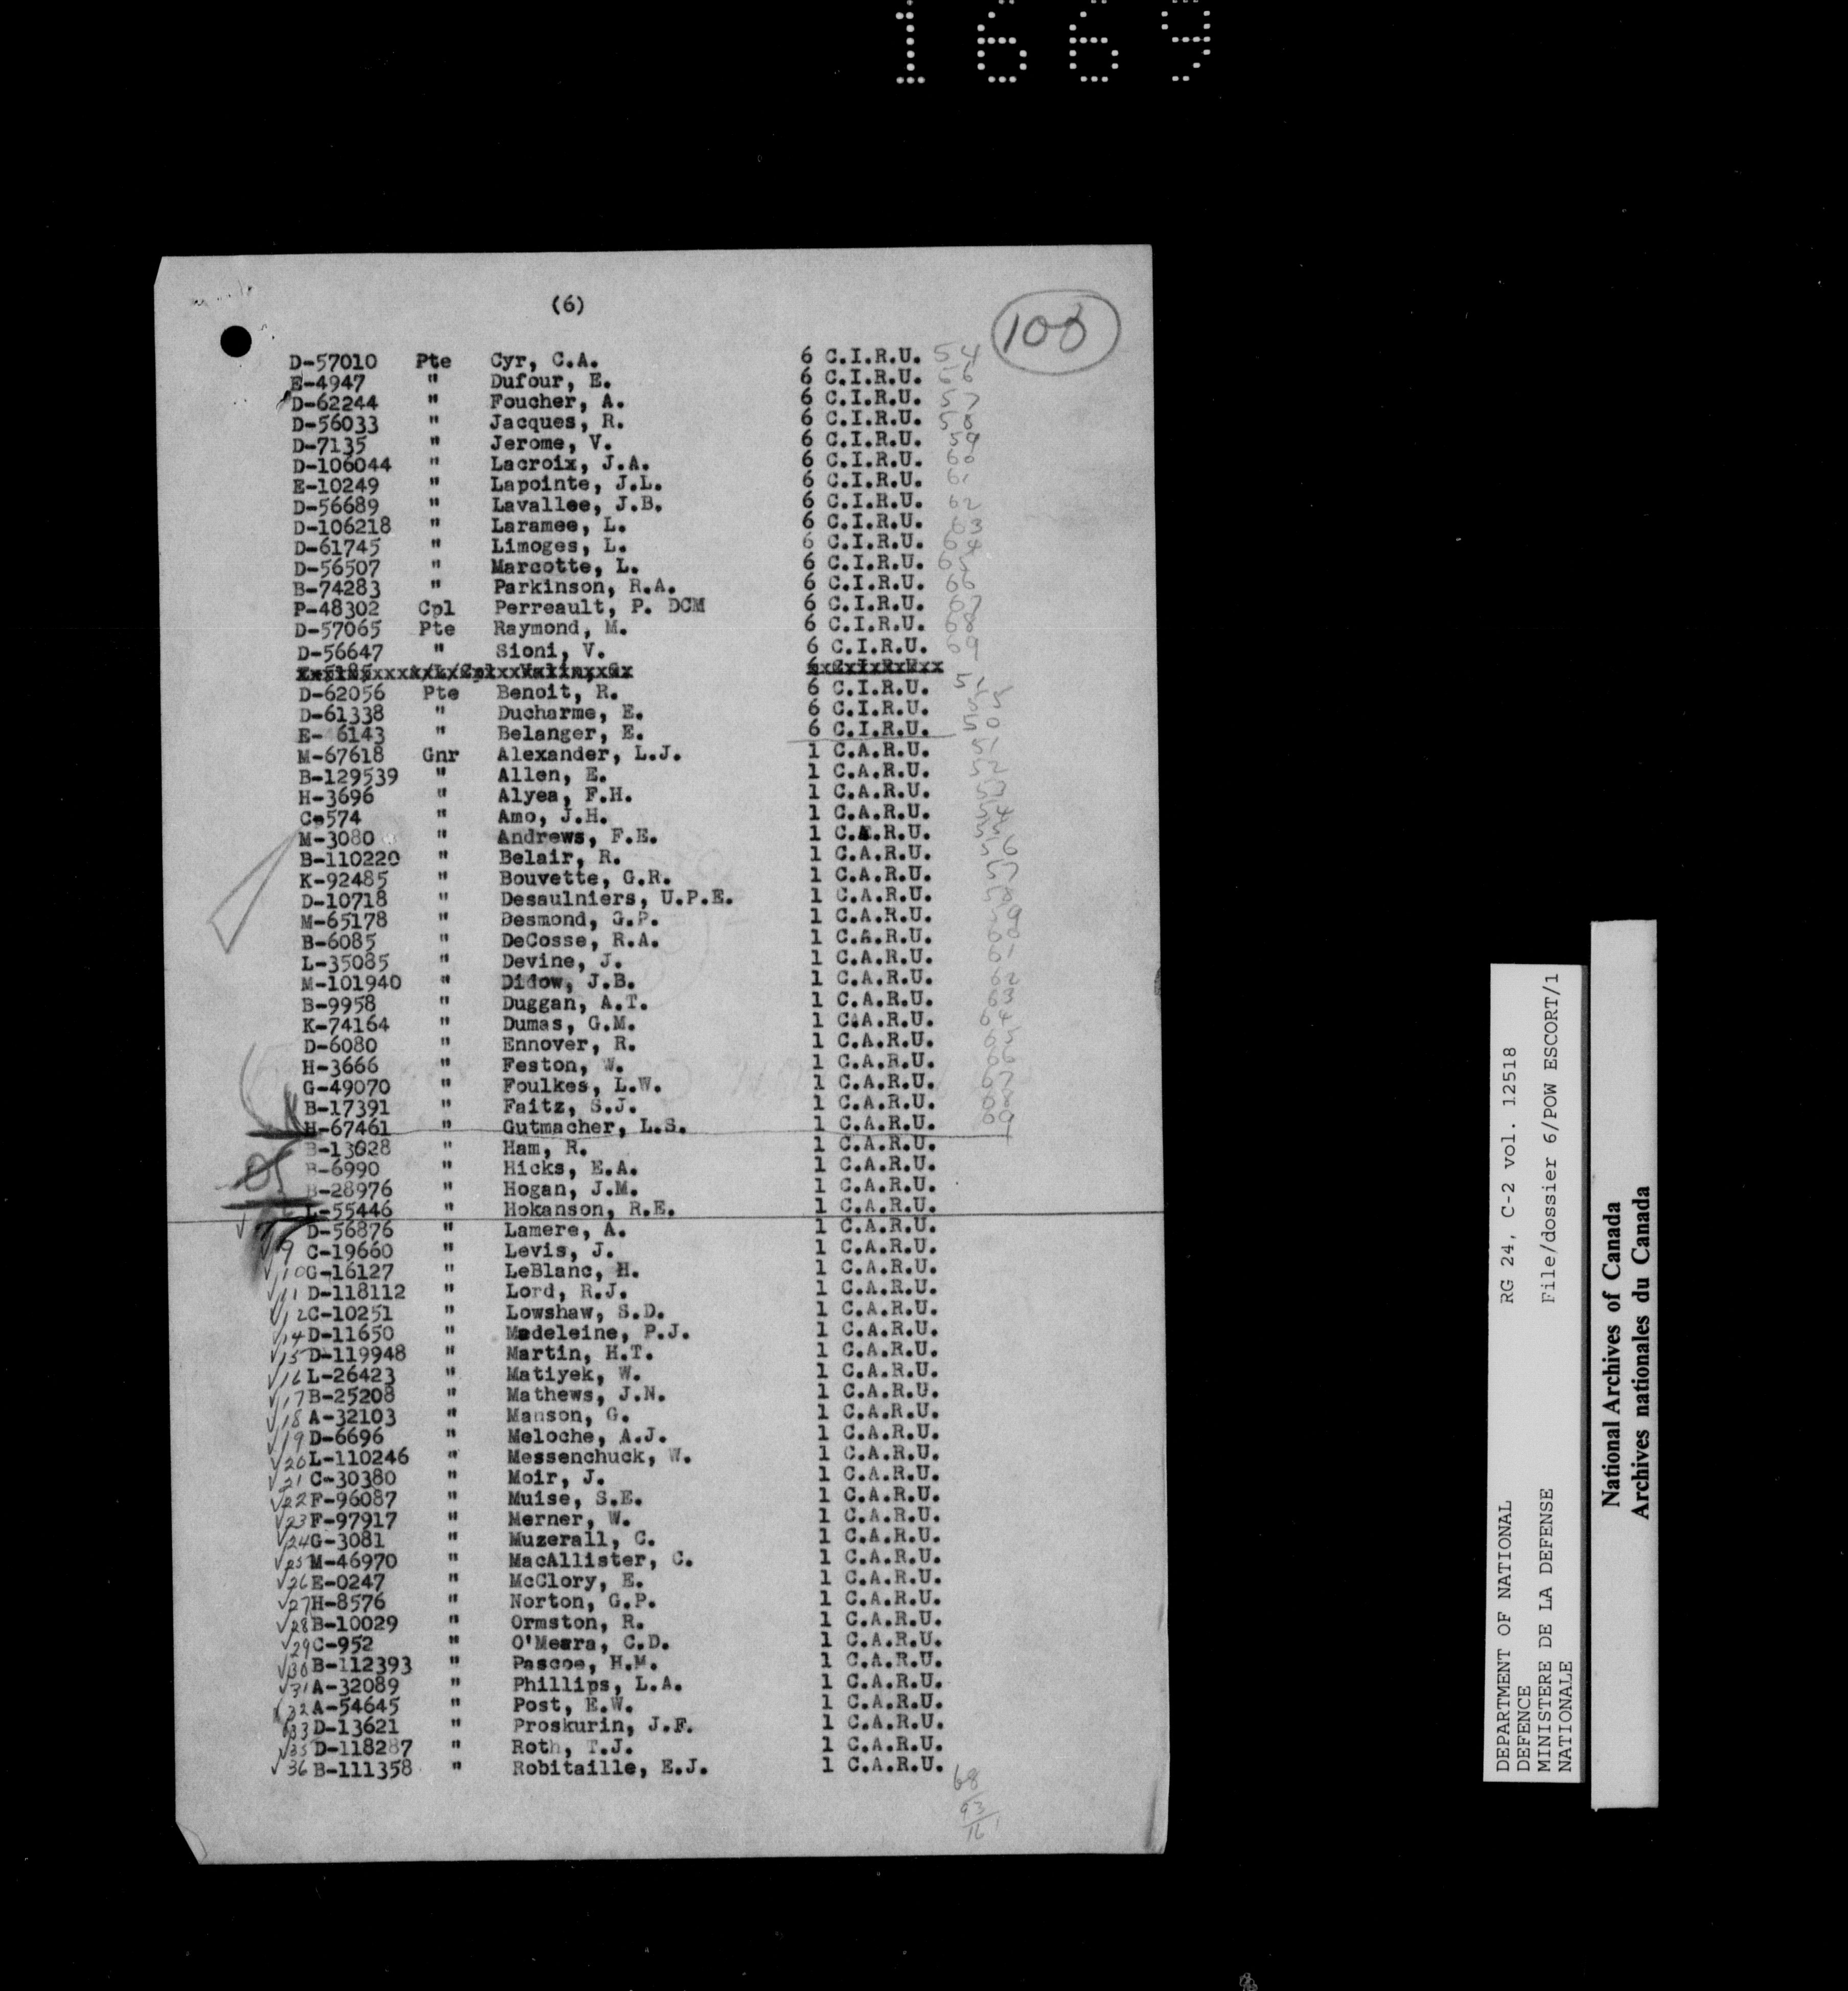 1669
(6)
103
D-57010 Pte Cyr, C.A. 6 C.I.R.U. 54
E-4947 " Dufour, E. 6 C.I.R.U. 56
D-62244 " Foucher, A. 6 C.I.R.U. 57
D-56033 " Jacques, R. 6 C.I.R.U. 58
D-7135 " Jerome, V. 6 C.I.R.U. 59
D-106044 " Lacroix, J.A. 6 C.I.R.U. 60
E-10249 " Lapointe, J.L. 6 C.I.R.U. 61
D-56689 " Lavallee, J.B. 6 C.I.R.U. 62
D-106218 " Laramee, L. 6 C.I.R.U. 63
D-61745 " Limoges, L. 6 C.I.R.U. 64
D-56507 " Marcotte, L. 6 C.I.R.U. 65
B-74283 " Parkinson, R.A. 6 C.I.R.U. 66
P-48302 Cpl Perreault, P. DCM 6 C.I.R.U. 67
D-57065 Pte Raymond, M. 6 C.I.R.U. 68
D-56647 " Sioni, V. 6 C.I.R.U. 69
D-62056 Pte Benoit, R. 6 C.I.R.U.
D-61338 " Ducharme, E. 6 C.I.R.U.
E- 6143 " Belanger, E. 6 C.I.R.U. 50
M-67618 Gnr Alexander, L.J. 1 C.A.R.U. 51
B-129539 " Allen, E. 1 C.A.R.U. 52
H-3696 " Alyea, F.H. 1 C.A.R.U. 53
C-574 " Amo, J.H. 1 C.A.R.U. 54
M-3080 " Andrews, F.E. 1 C.A.R.U. 55
B-110220 " Belair, R. 1 C.A.R.U. 56
K-92485 " Bouvette, G.R. 1 C.A.R.U. 57
D-10718 " Desaulniers, U.P.E. 1 C.A.R.U. 58
M-65178 " Desmond, G.P. 1 C.A.R.U. 59
B-6085 " DeCosse, R.A. 1 C.A.R.U. 60
L-35085 " Devine, J. 1 C.A.R.U. 61
M-101940 " Didow, J.B. 1 C.A.R.U. 62
B-9958 " Duggan, A.T. 1 C.A.R.U. 63
K-74164 " Dumas, G.M. 1 C.A.R.U. 64
D-6080 " Ennover, R. 1 C.A.R.U. 65
H-3666 " Feston, W. 1 C.A.R.U. 66
G-49070 " Foulkes, L.W. 1 C.A.R.U. 67
B-17391 " Faitz, S.J. 1 C.A.R.U. 68
H-67461 " Gutmacher, L.S. 1 C.A.R.U. 69
B-13028 " Ham, R. 1 C.A.R.U.
B-6990 " Hicks, E.A. 1 C.A.R.U.
B-28976 " Hogan, J.M. 1 C.A.R.U.
L-55446 " Hokanson, R.E. 1 C.A.R.U.
D-56876 " Lamere, A. 1 C.A.R.U.
9 C-19660 " Levis, J. 1 C.A.R.U.
10 G-16127 " LeBlanc, H. 1 C.A.R.U.
11 D-118112 " Lord, R.J. 1 C.A.R.U.
12 C-10251 " Lowshaw, S.D. 1 C.A.R.U.
14 D-11650 " Madeleine, P.J. 1 C.A.R.U.
15 D-119948 " Martin, H.T. 1 C.A.R.U.
16 L-26423 " Matiyek, W. 1 C.A.R.U.
17 B-25208 " Mathews, J.N. 1 C.A.R.U.
18 A-32103 " Manson, G. 1 C.A.R.U.
19 D-6696 " Meloche, A.J. 1 C.A.R.U.
20 L-110246 " Messenchuck, W. 1 C.A.R.U.
21 C-30380 " Moir, J. 1 C.A.R.U.
22 F-96087 " Muise, S.E. 1 C.A.R.U.
23 F-97917 " Merner, W. 1 C.A.R.U.
24 G-3081 " Muzerall, C. 1 C.A.R.U.
25 M-46970 " MacAllister, C. 1 C.A.R.U.
26 E-0247 " McClory, E. 1 C.A.R.U.
27 H-8576 " Norton, G.P. 1 C.A.R.U.
28 B-10029 " Ormston, R. 1 C.A.R.U.
29 C-952 " O'Meara, C.D. 1 C.A.R.U.
30 B-112393 " Pascoe, H.M. 1 C.A.R.U.
31 A-32089 " Phillips, L.A. 1 C.A.R.U.
32 A-54645 " Post, E.W. 1 C.A.R.U.
33 D-13621 " Proskurin, J.F. 1 C.A.R.U.
35 D-118287 " Roth, T.J. 1 C.A.R.U.
36 B-111358 " Robitaille, E.J. 1 C.A.R.U.
68
93
16
DEPARTMENT OF NATIONAL RG 24, C-2 vol. 12518
DEFENCE
MINISTERE DE LA DEFENSE File/dossier 6/POW ESCORT/1
NATIONALE
National Archives of Canada
Archives nationales du Canada